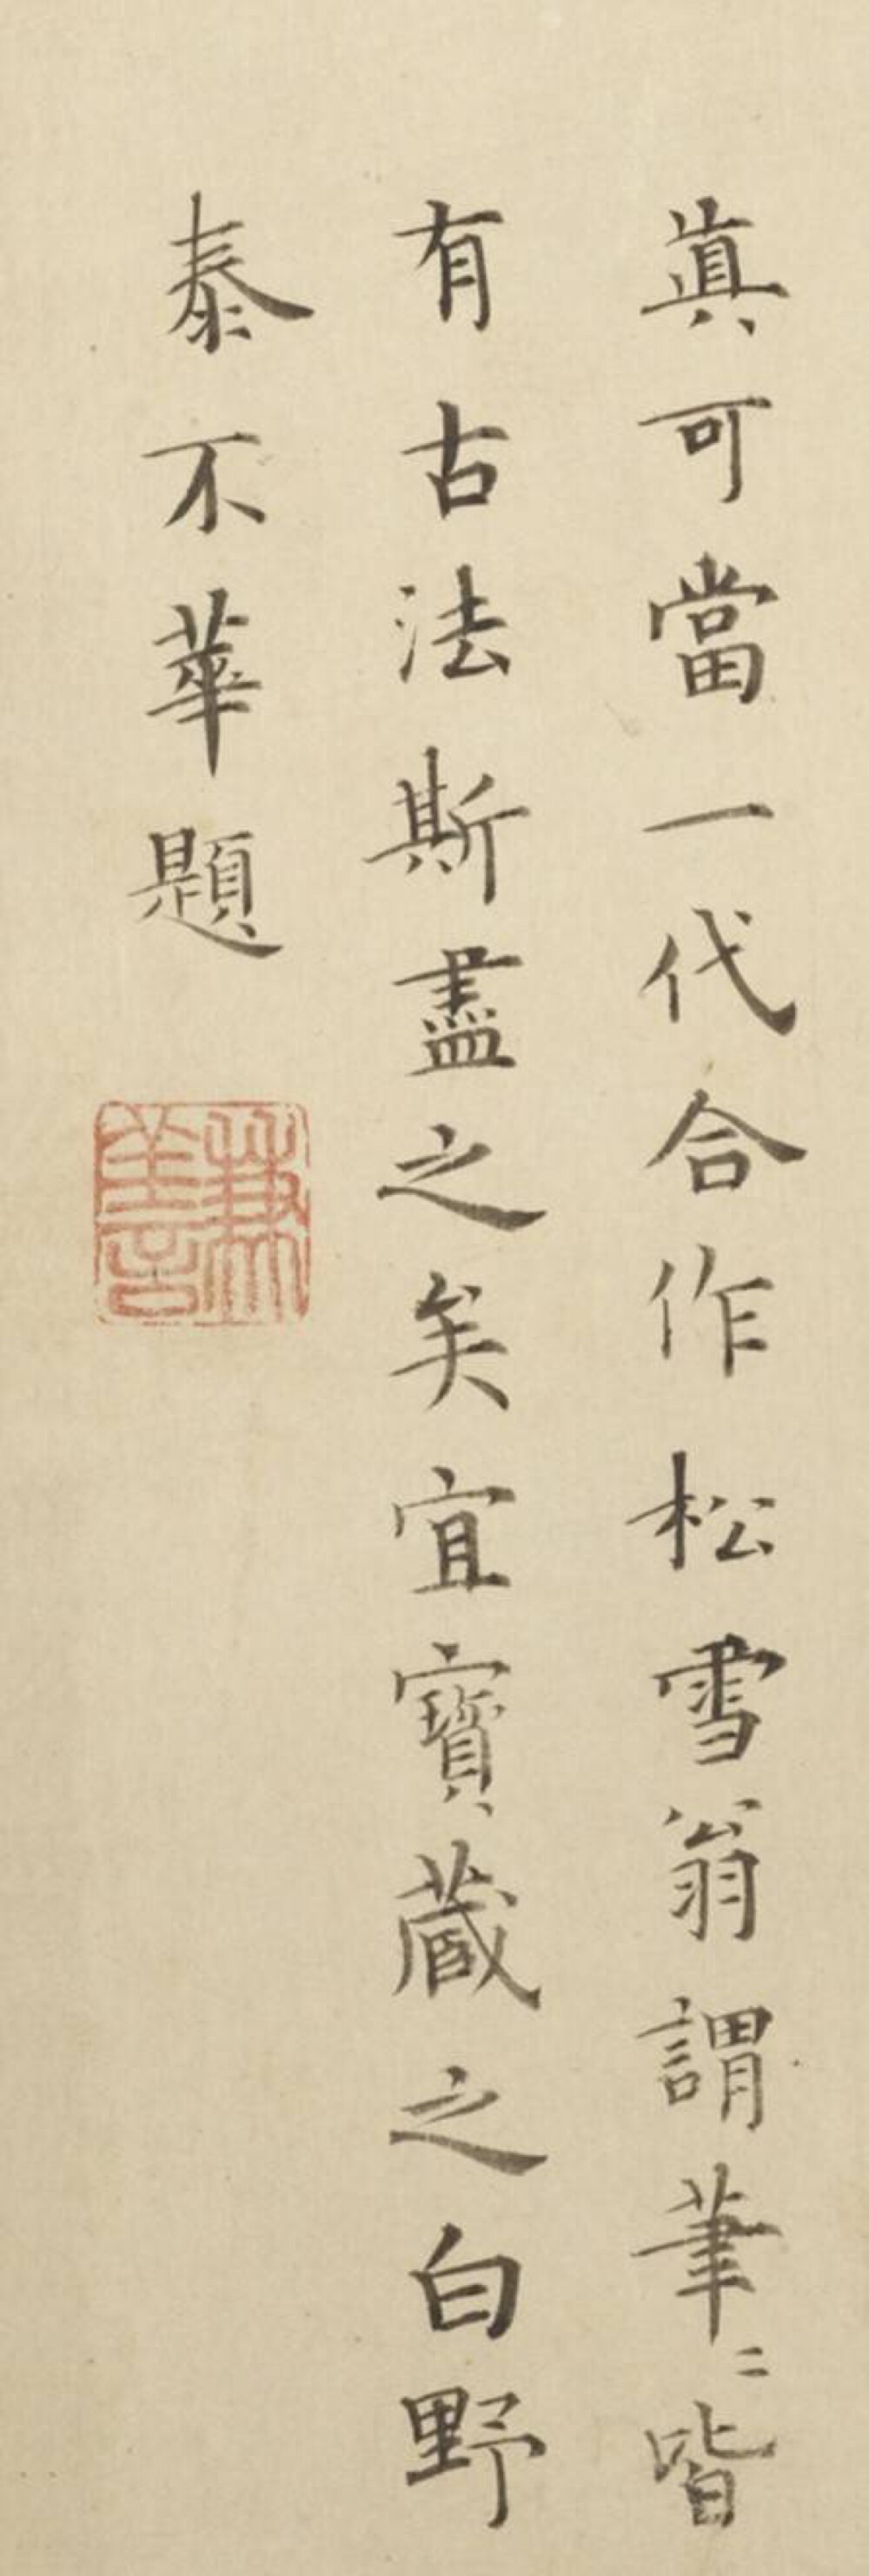 真可當一代合作松雪翁謂筆〻皆
有古法斯盡之矣宜寳蔵之白野
泰不華題
兼善